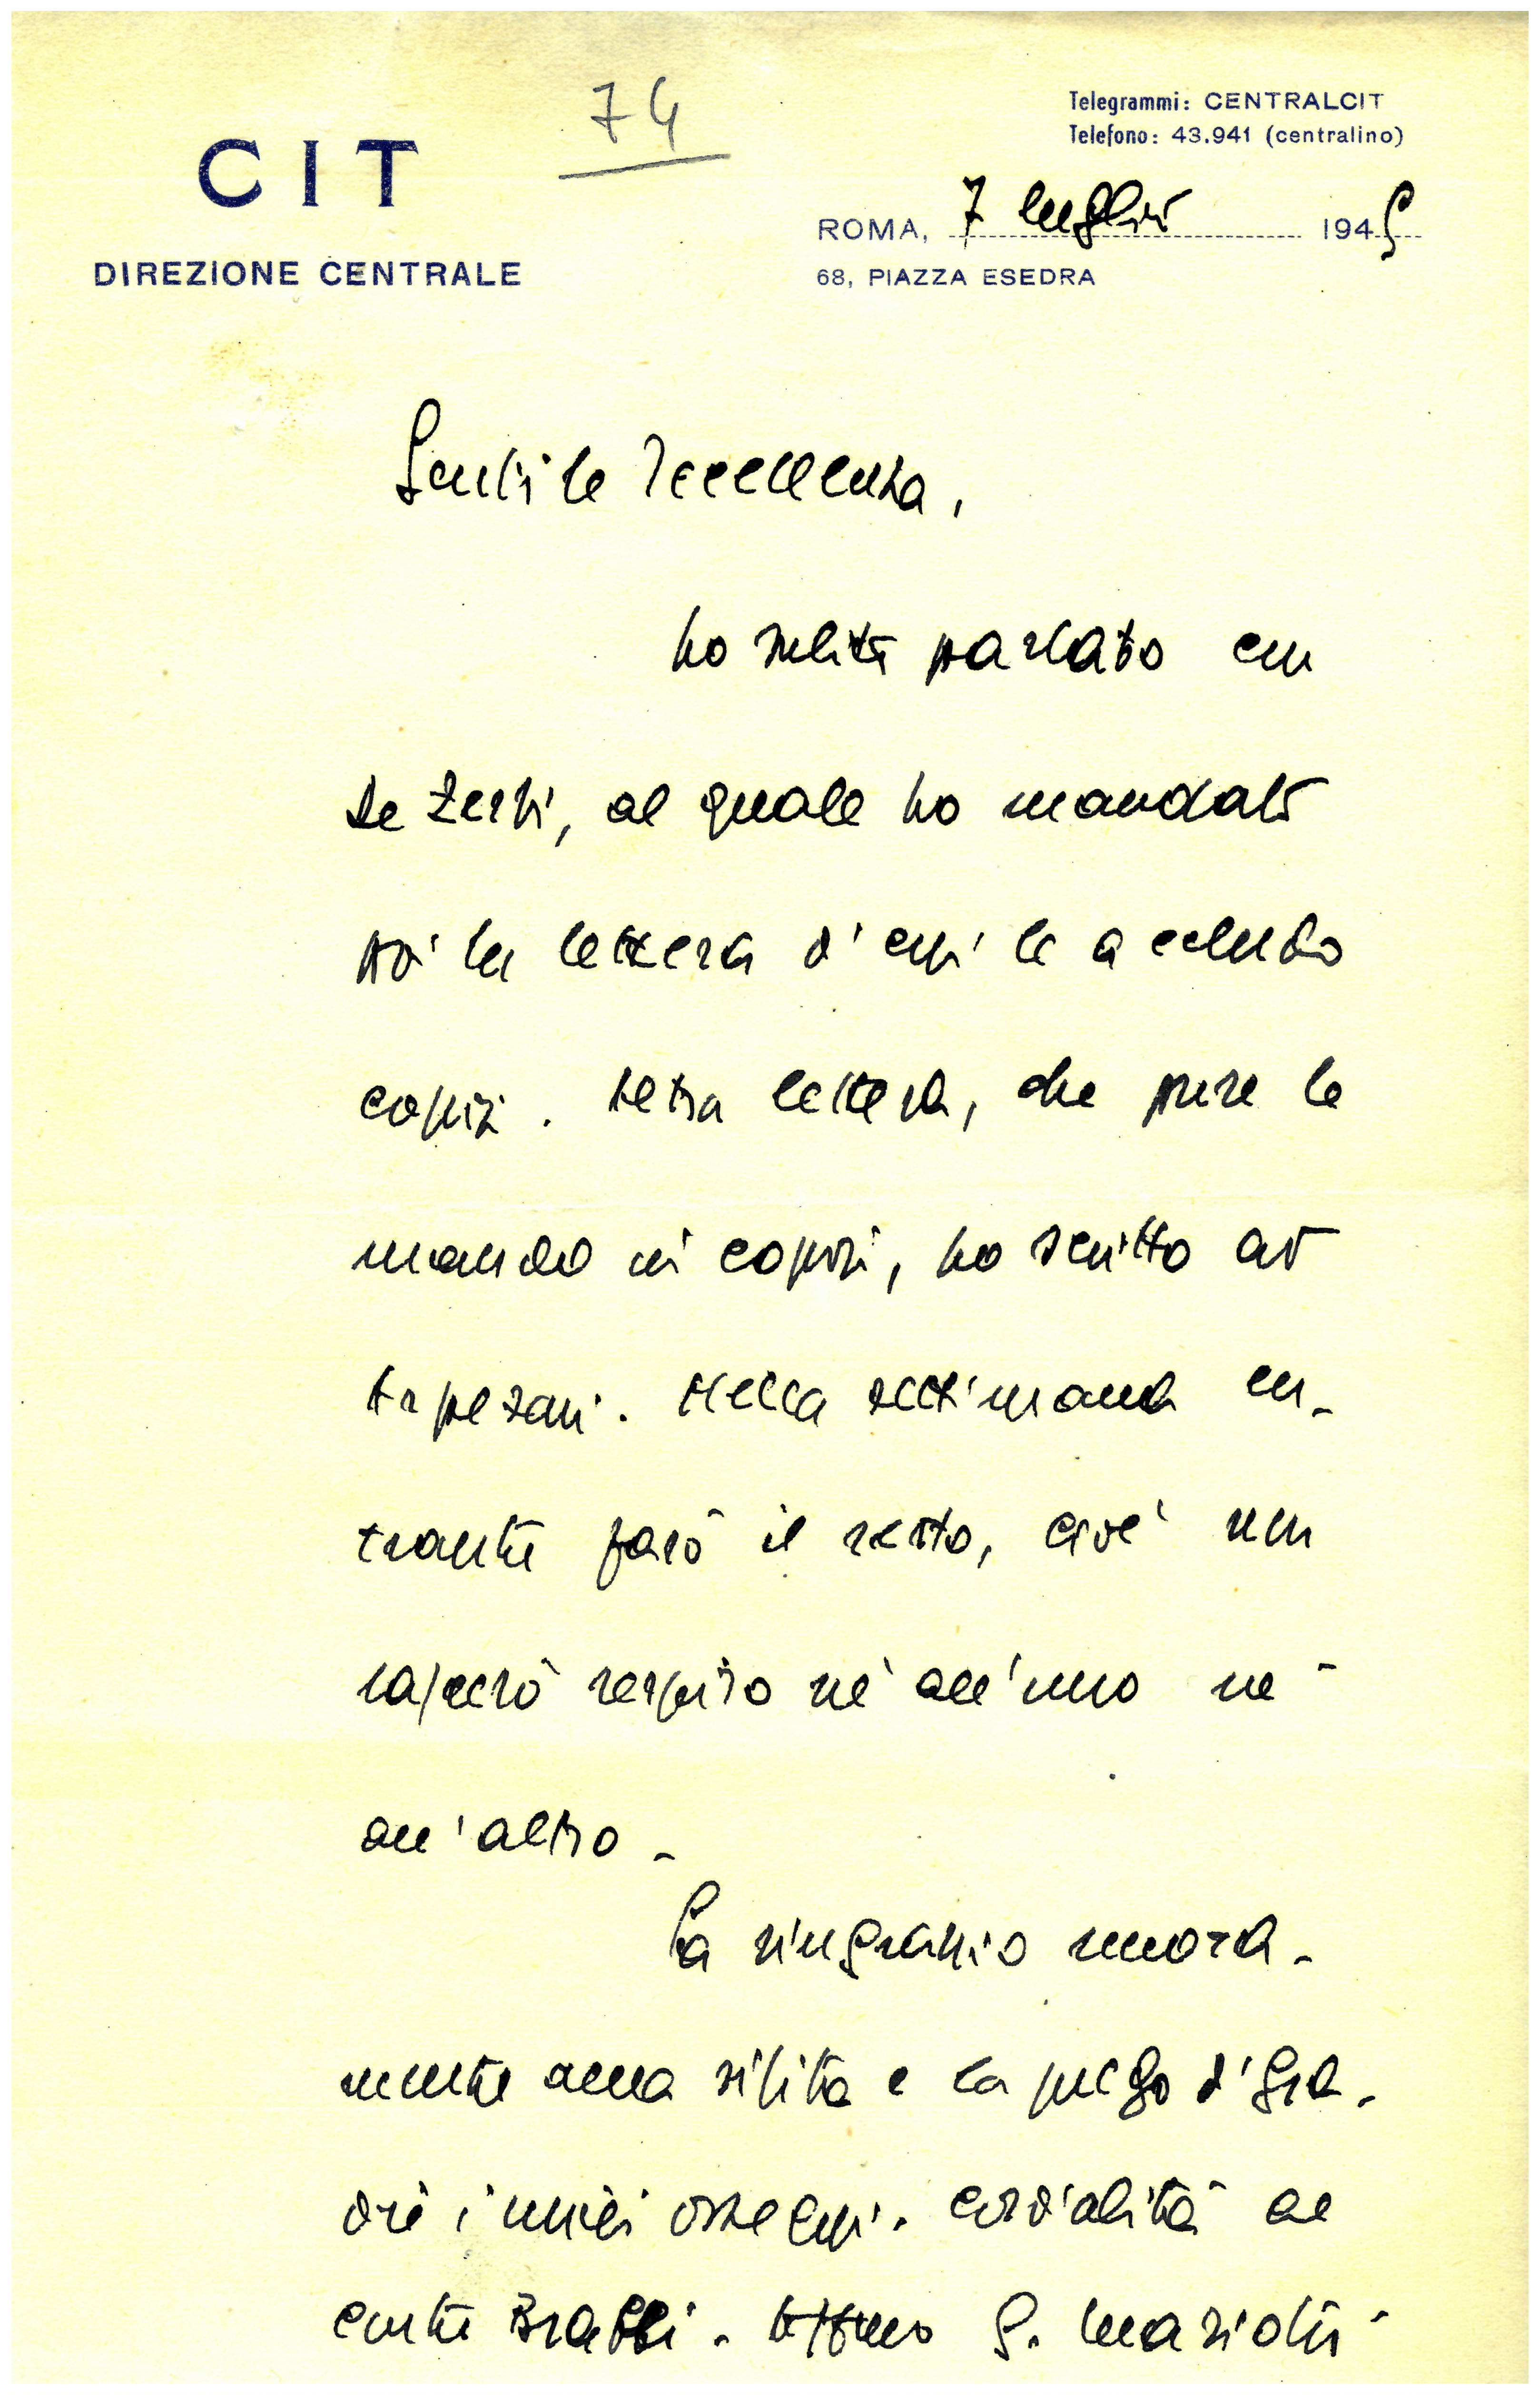 74
Telegrammi: CENTRALCIT
Telefono: 43.941 (centralino)
CIT
DIREZIONE CENTRALE
ROMA, 7 luglio 1945
68, PIAZZA ESEDRA
Gentile Eccellenza,
ho subito parlato con
De Zerbi, al quale ho mandato
poi la lettera di cui le accludo
copia. Altra lettera, che pure le
mando in copia, ho scritto ad
Nella settimana en-
trante farò il resto, cioè non
lascerò respiro nè all'uno nè
all'altro -
La ringrazio nuova-
mente della visita e la prego di gra-
dire i miei ossequi. Cordialità al
conte G. Mariotti